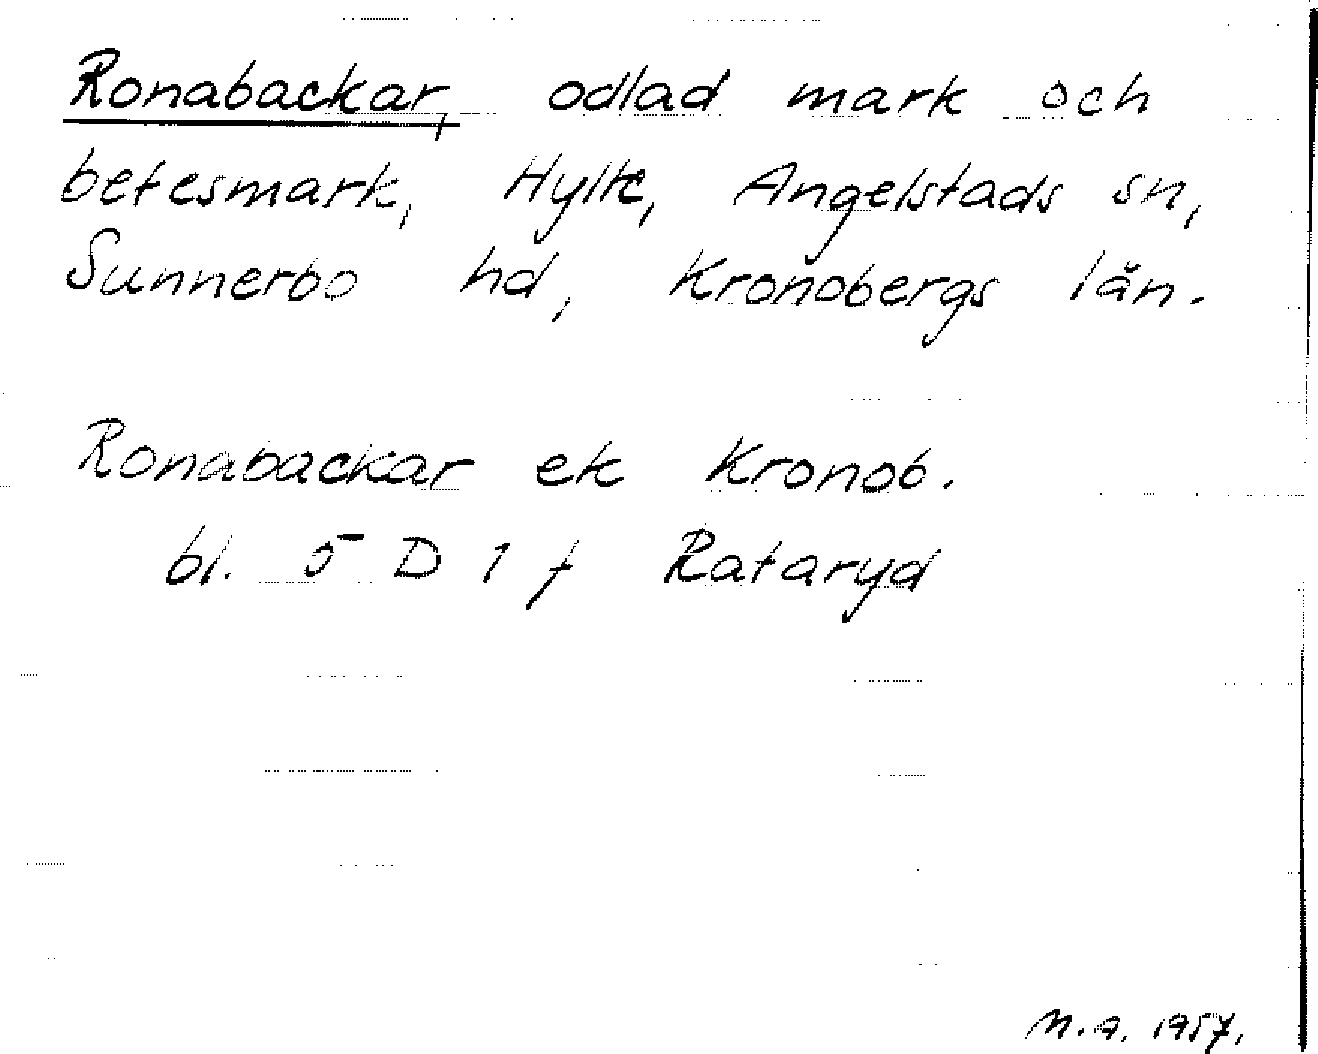 Ronabackar, odlad mark och
betesmark, Hylte, Angelstads sn,
Sunnerbo hd, Kronobergs län.
Ronabackar ek Kronob.
bl. 5 D 1 f Rataryd
N.A. 1957.